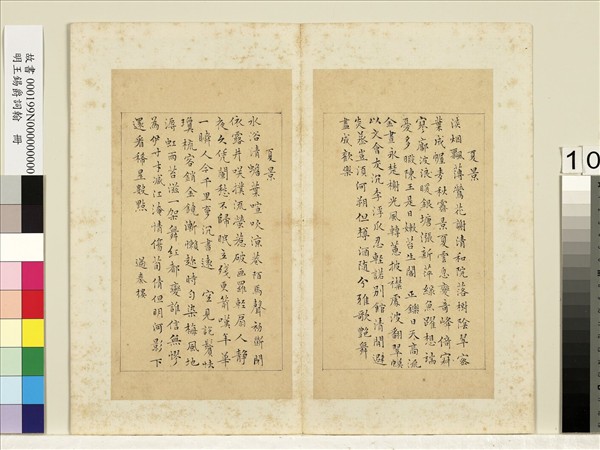 故書 000199N000000000
明王錫爵詞翰 冊
10
夏景
淡烟飄薄鶯花謝清和院落樹陰翠密
葉成幄麥秋霽景夏雲忽變奇峰倚寥
寥廓波浪暖銀塘漲新萍綠魚躍想端
憂多暇陳王是日嫩苔生閣 正鑠日天高流
金晝永楚榭光風轉蕙披襟處波翻翠幙
以文會友沉李浮瓜忍輕諾別館清閒避
炎蒸豈須河朔但樽酒隨今雅歌艷舞
盡成歡樂
夏景
水浴清蟾葉喧吹涼巷陌馬聲初斷閒
依露井笑撲流螢惹破画羅輕扇人靜
夜久凭闌愁不歸眠立殘更箭嘆年華
一瞬人今千里夢沉書遠 空見說鬢怯
瓊梳容銷金鏡漸懶趁時勻染梅風地
溽虹雨苔滋一架舞紅都變誰信無憀
為伊才減江淹情傷荀倩但明河影下
還看稀星數點 過秦樓